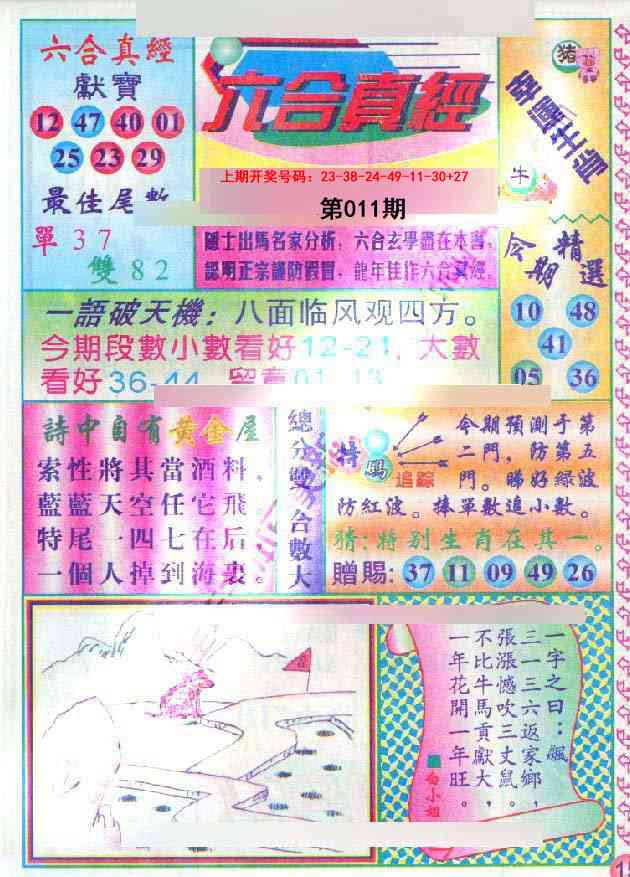 六合真經
獻寶
12 47 40 01
25 23 29
最佳尾數
單37
雙82
六合真經
上期开奖号码：23-38-24-49-11-30+27
第011期
隱士出馬名家分析，六合玄學盡在本書，
認明正宗謹防假冒，龍年佳作六合真經。
豬
牛
今期精選
10 48
41
05 36
一語破天機：八面临风观四方。
今期段數小數看好12-21，大數
看好36-44，留意01-13
詩中自有黃金屋
索性將其當酒料，
藍藍天空任它飛。
特尾一四七在后，
一個人掉到海裏。
總分雙，合數大
特碼追踪
令期預測于第
二門，防第五
門。睇好綠波
防紅波。捧單數追小數。
猜：特别生肖在其一。
贈賜：37 11 09 49 26
一字之曰：飄
三一三六返家鄉，
張漲憾吹三丈鼠，
不比牛馬貢獻大，
一年花開一年旺。
白小姐